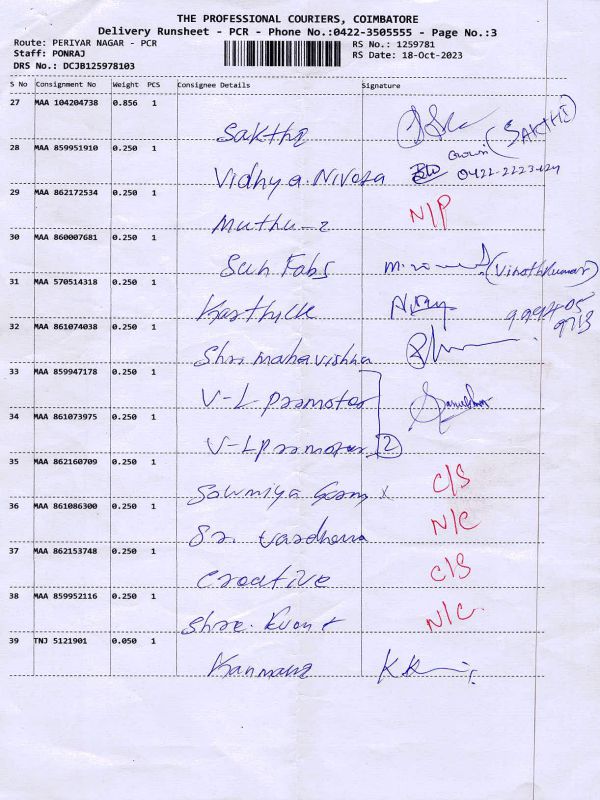 THE PROFESSIONAL COURIERS, COIMBATORE
Delivery Runsheet - PCR - Phone No.:0422-3505555 - Page No.:3
Route: PERIYAR NAGAR - PCR RS No.: 1259781
Staff: PONRAJ RS Date: 18-Oct-2023
DRS No.: DCJB125978103
S No Consignment No Weight PCS Consignee Details Signature
27 MAA 104204738 0.856 1
Sakthi (SAKTHI)
28 MAA 859951910 0.250 1
Vidhya.Nivota 0422-2223424
29 MAA 862172534 0.250 1
Muthu-2 N/P
30 MAA 860007681 0.250 1
Sun Fabs (Vinothkumar)
31 MAA 570514318 0.250 1
Karthick
32 MAA 861074038 0.250 1
Shri mahavishka
33 MAA 859947178 0.250 1
V-L promoter
34 MAA 861073975 0.250 1
V-L promoter 2
35 MAA 862160709 0.250 1
Sowmiya C/S
36 MAA 861086300 0.250 1
Sri. vardhana N/C
37 MAA 862153748 0.250 1
Creative C/S
38 MAA 859952116 0.250 1
Shree. N/C
39 TNJ 5121901 0.050 1
Kanmani